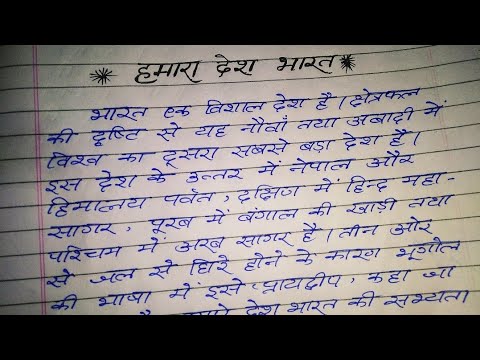 * हमारा देश भारत *
भारत एक विशाल देश है। क्षेत्रफल
की दृष्टि से यह नौवाँ तथा अबादी में
विश्व का दूसरा सबसे बड़ा देश है।
इस देश के उत्तर में नेपाल और
हिमालय पर्वत, दक्षिण में हिन्द महा-
सागर, पूरब में बंगाल की खाड़ी तथा
पश्चिम में अरब सागर है। तीन ओर
से जल से घिरे होने के कारण भूगोल
की भाषा में इसे 'प्रायद्वीप' कहा जा
है देश भारत की सभ्यता